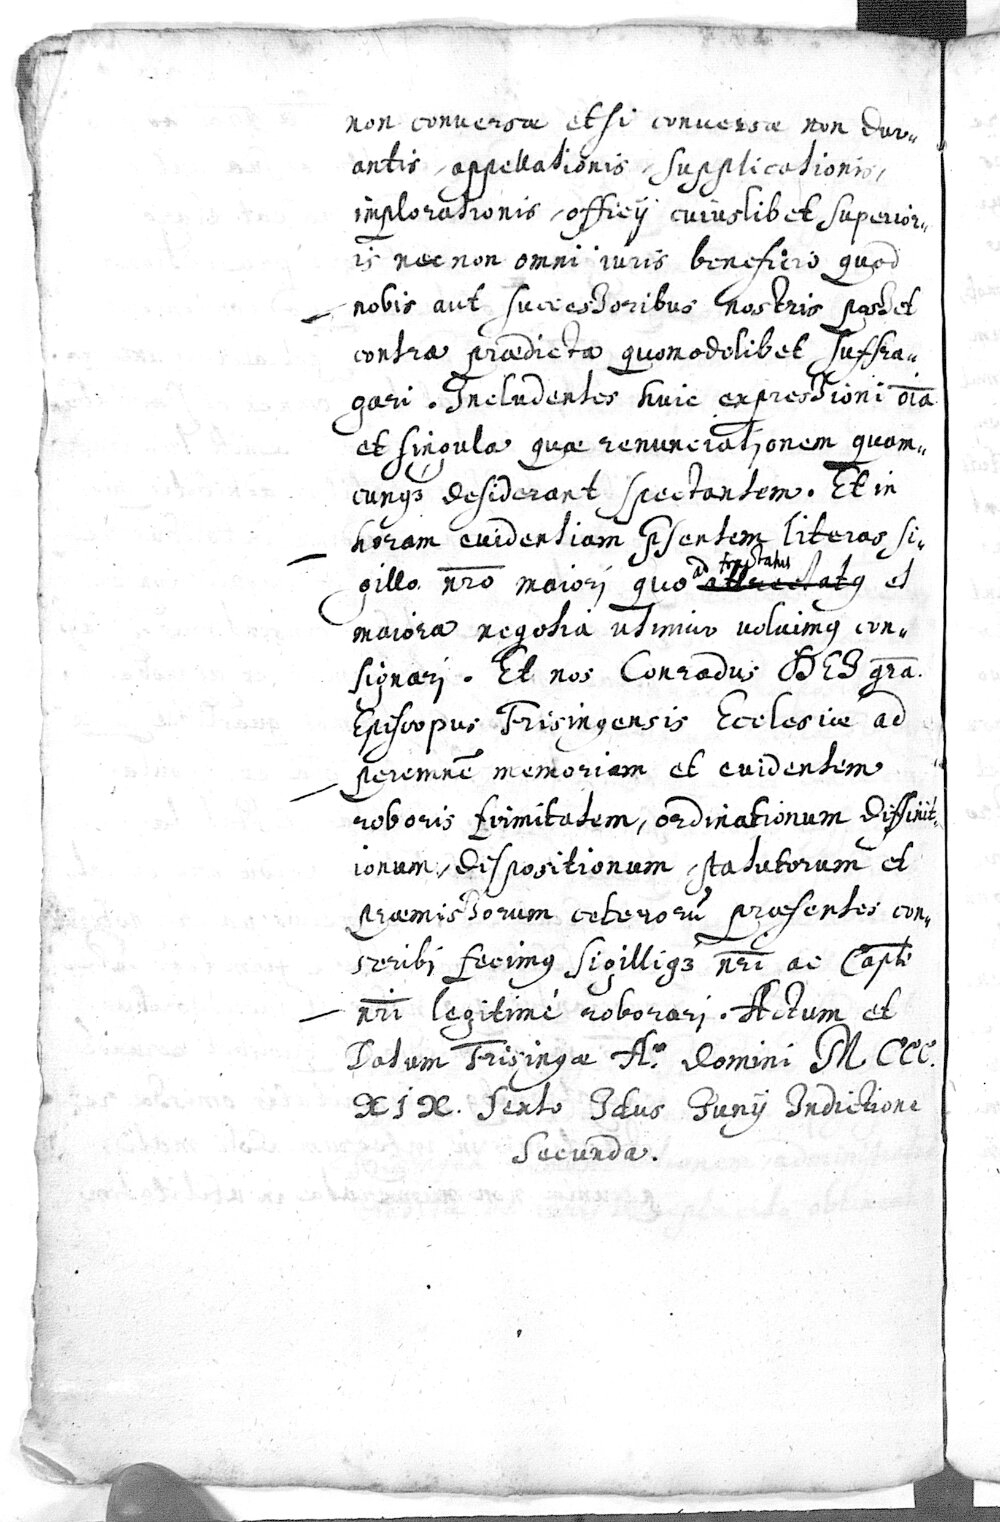 non conversæ etsi conversæ non dur„
antis, appellationis, supplicationis,
implorationis, officij cuiuslibet superior„
is nec non omni iuris beneficio quod
nobis aut successoribus nostris posset
contra prædicta quomodolibet suffra„
gari. Includentes huic expressioni oīa
et singula quæ renunciationem quam„
cunqȝ desiderant spectantem. Et in
horam evidentiam p̄sentem literas si„
gillo n̄ro maiorj quo ad tractatus et
maiora negotia utimur voluimꝰ con„
signarj. Et nos Conradus DEI gr̄a.
Episcopus Frisingensis Ecclesiæ ad
peremnē memoriam et evidentem
roboris firmitatem, ordinationum diffinit„
ionum, dispositionum, statutorum et
præmissorum ceterorū præsentes con„
scribj fecimꝰ sigilliqȝ n̄ri ac Capli
n̄ri legitimè roborarj. Actum et
Datum Frisingæ Aº. domini M CCC.
XIX. Sexto Idus Junij Indictione
Secunda.